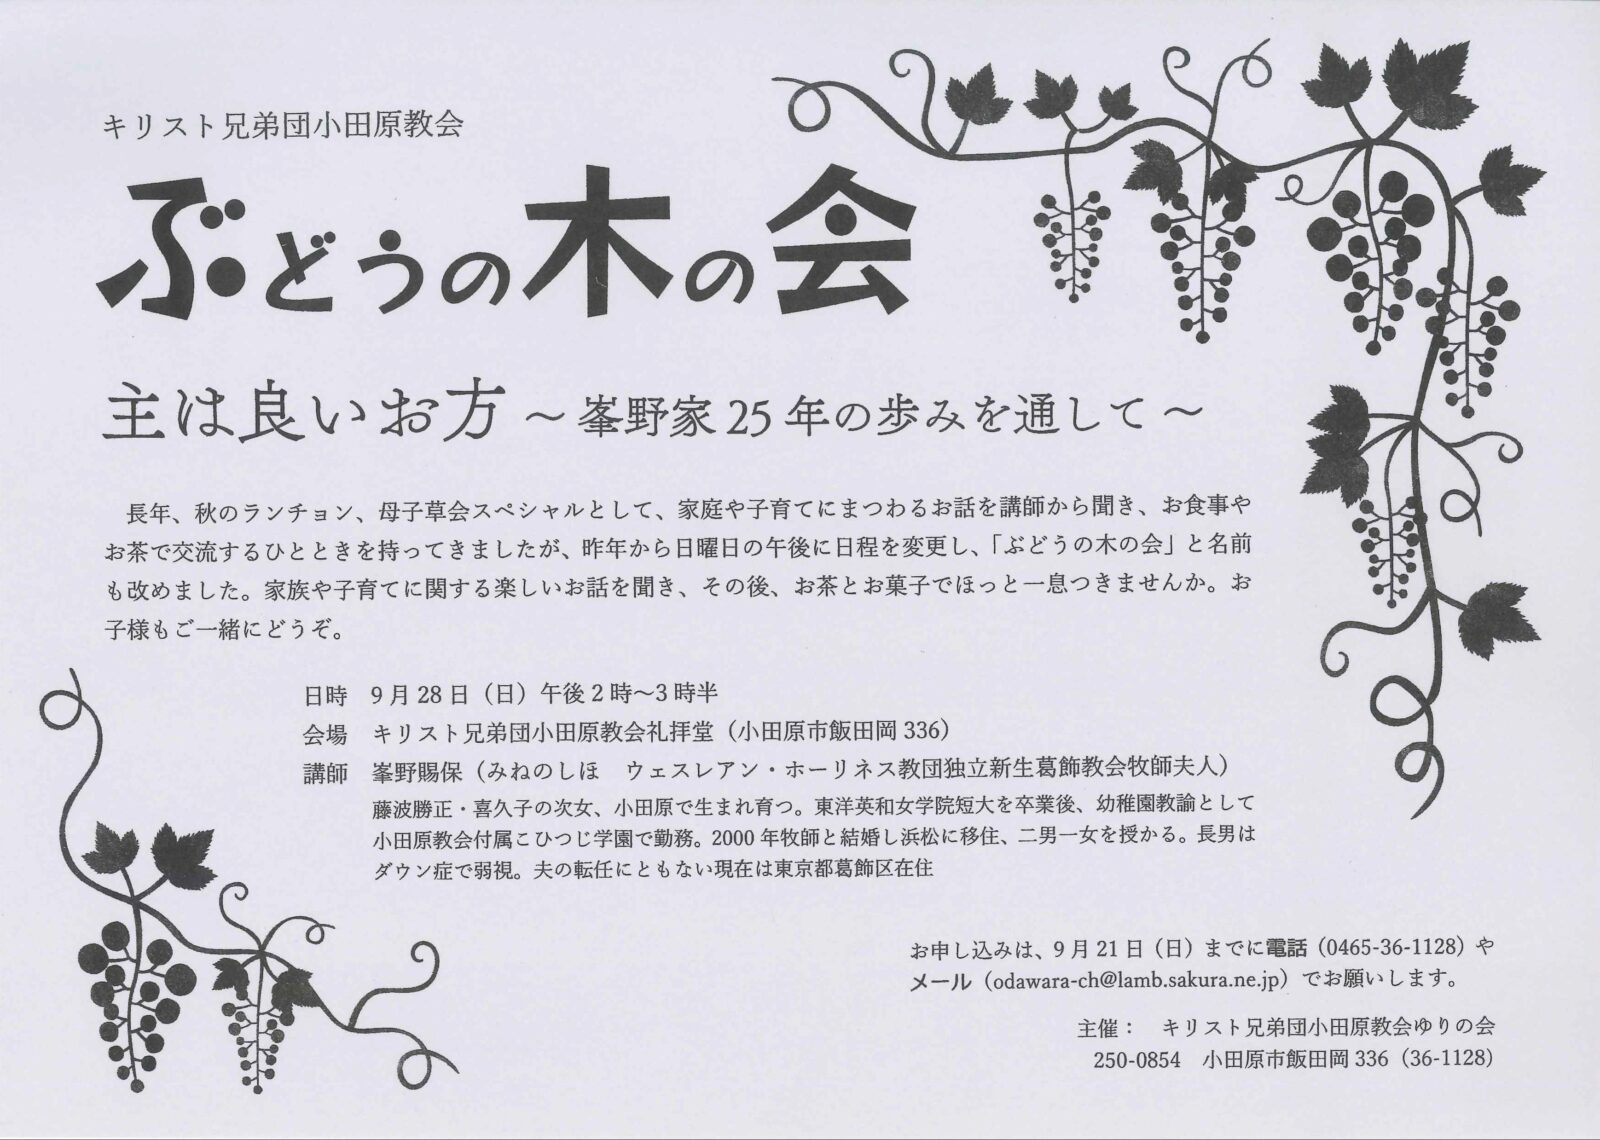 キリスト兄弟団小田原教会
ぶどうの木の会
主は良いお方 ～ 峯野家 25 年の歩みを通して ～
長年、秋のランチョン、母子草会スペシャルとして、家庭や子育てにまつわるお話を講師から聞き、お食事や
お茶で交流するひとときを持ってきましたが、昨年から日曜日の午後に日程を変更し、「ぶどうの木の会」と名前
も改めました。家族や子育てに関する楽しいお話を聞き、その後、お茶とお菓子でほっと一息つきませんか。お
子様もご一緒にどうぞ。
日時　9 月 28 日（日）午後 2 時～3 時半
会場　キリスト兄弟団小田原教会礼拝堂（小田原市飯田岡 336）
講師　峯野賜保（みねのしほ　ウェスレアン・ホーリネス教団独立新生葛飾教会牧師夫人）
藤波勝正・喜久子の次女、小田原で生まれ育つ。東洋英和女学院短大を卒業後、幼稚園教諭として
小田原教会付属こひつじ学園で勤務。2000 年牧師と結婚し浜松に移住、二男一女を授かる。長男は
ダウン症で弱視。夫の転任にともない現在は東京都葛飾区在住
お申し込みは、9 月 21 日（日）までに電話（0465-36-1128）や
メール（odawara-ch@lamb.sakura.ne.jp）でお願いします。
主催：　キリスト兄弟団小田原教会ゆりの会
250-0854　小田原市飯田岡 336（36-1128）